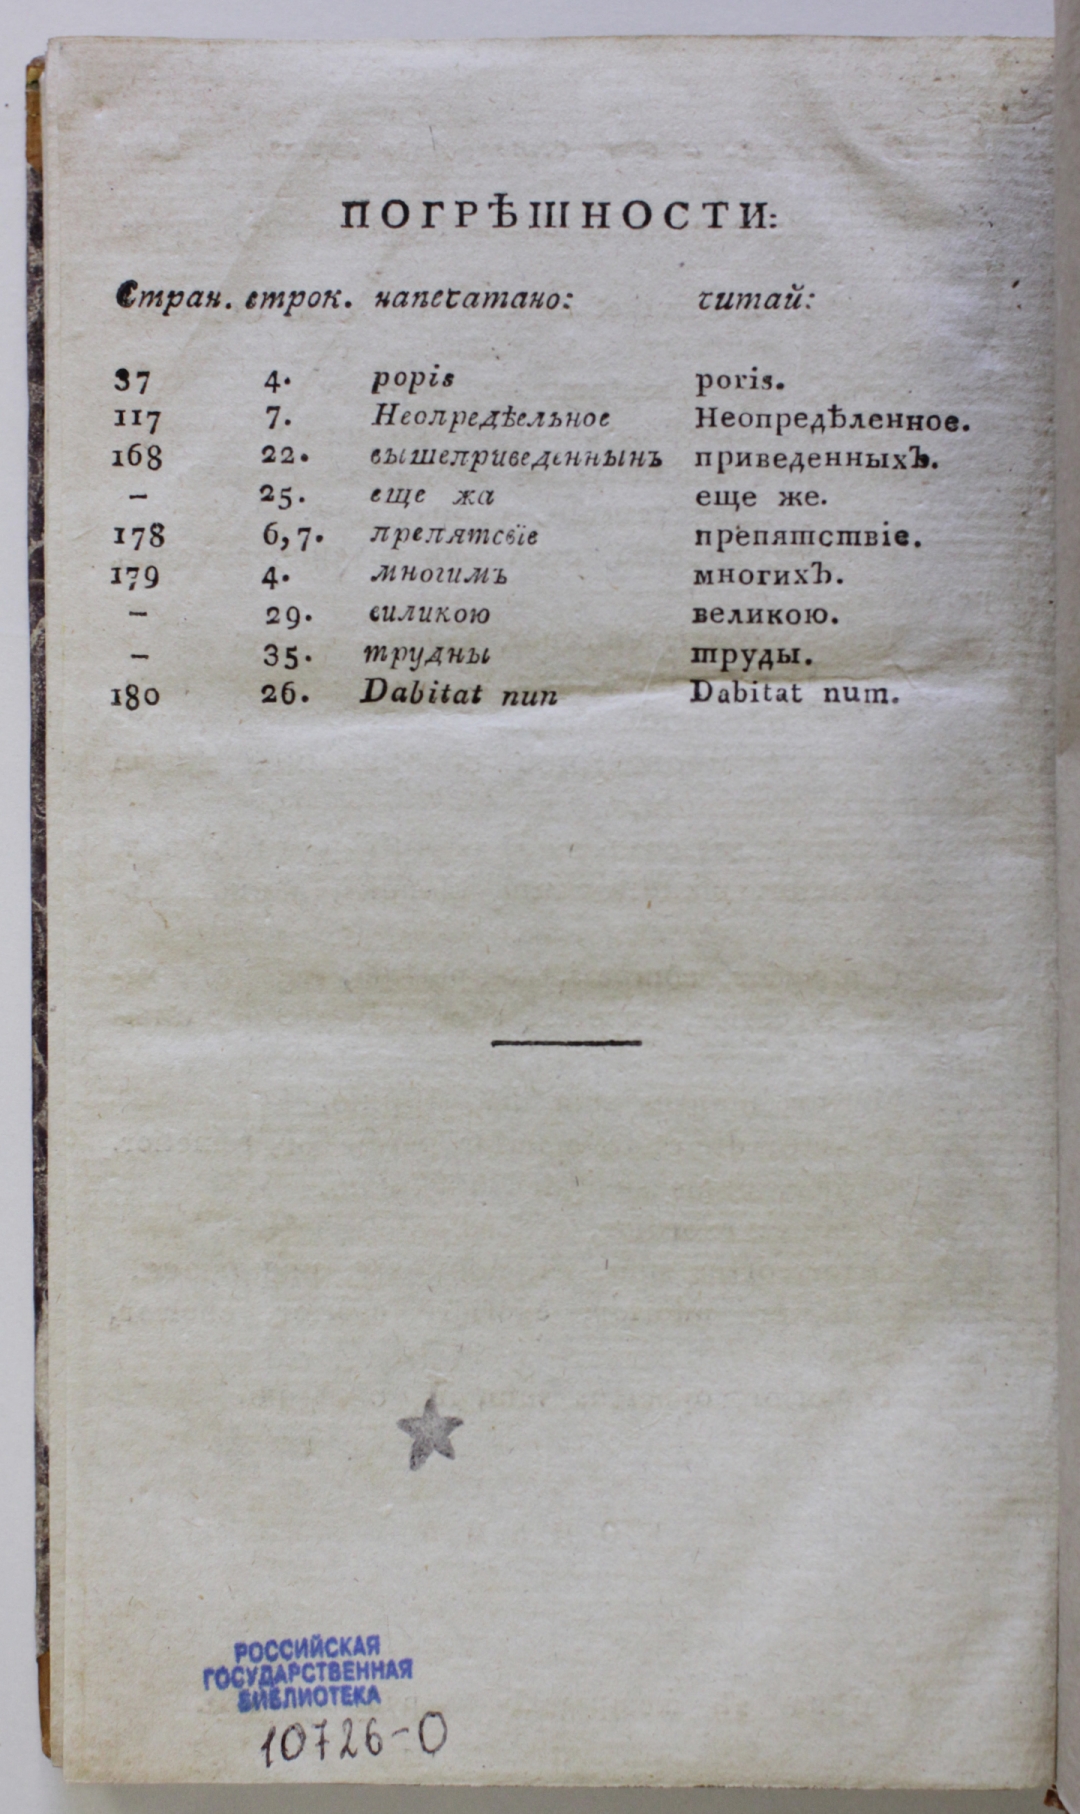 ПОГРѢШНОСТИ:
Стран. строк. напечатано: читай:
37 4. popis poris.
117 7. Неопредѣельное Неопредѣленное.
168 22. вышеприведеннынъ приведенныхЪ.
– 25. еще жа еще же.
178 6,7. препятсвїе препятствіе.
179 4. многимъ многихЪ.
– 29. виликою великою.
– 35. трудны труды.
180 26. Dabitat nun Dabitat num.
РОССИЙСКАЯ
ГОСУДАРСТВЕННАЯ
БИБЛИОТЕКА
10726-0